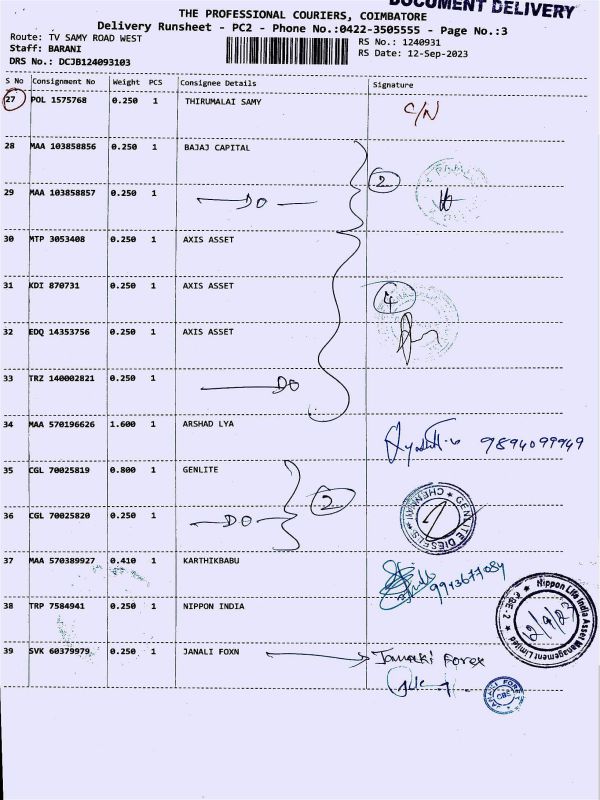 DOCUMENT DELIVERY
THE PROFESSIONAL COURIERS, COIMBATORE
Delivery Runsheet - PC2 - Phone No.:0422-3505555 - Page No.:3
Route: TV SAMY ROAD WEST
RS No.: 1240931
Staff: BARANI
RS Date: 12-Sep-2023
DRS No.: DCJB124093103
S No Consignment No Weight PCS Consignee Details Signature
27 POL 1575768 0.250 1 THIRUMALAI SAMY C/N
28 MAA 103858856 0.250 1 BAJAJ CAPITAL
2
29 MAA 103858857 0.250 1 DO
30 MTP 3053408 0.250 1 AXIS ASSET
31 KDI 870731 0.250 1 AXIS ASSET
4
32 EDQ 14353756 0.250 1 AXIS ASSET
33 TRZ 140002821 0.250 1 DO
34 MAA 570196626 1.600 1 ARSHAD LYA
9894099949
35 CGL 70025819 0.800 1 GENLITE
2
GENLITE DIESELS * CHENNAI *
36 CGL 70025820 0.250 1 DO
37 MAA 570389927 0.410 1 KARTHIKBABU
9943677084
38 TRP 7584941 0.250 1 NIPPON INDIA
Nippon Life India Asset Management Limited * CBE-2 *
12/9/23
39 SVK 60379979 0.250 1 JANALI FOXN Janaki Forex
JANAKI FOREX
CBE